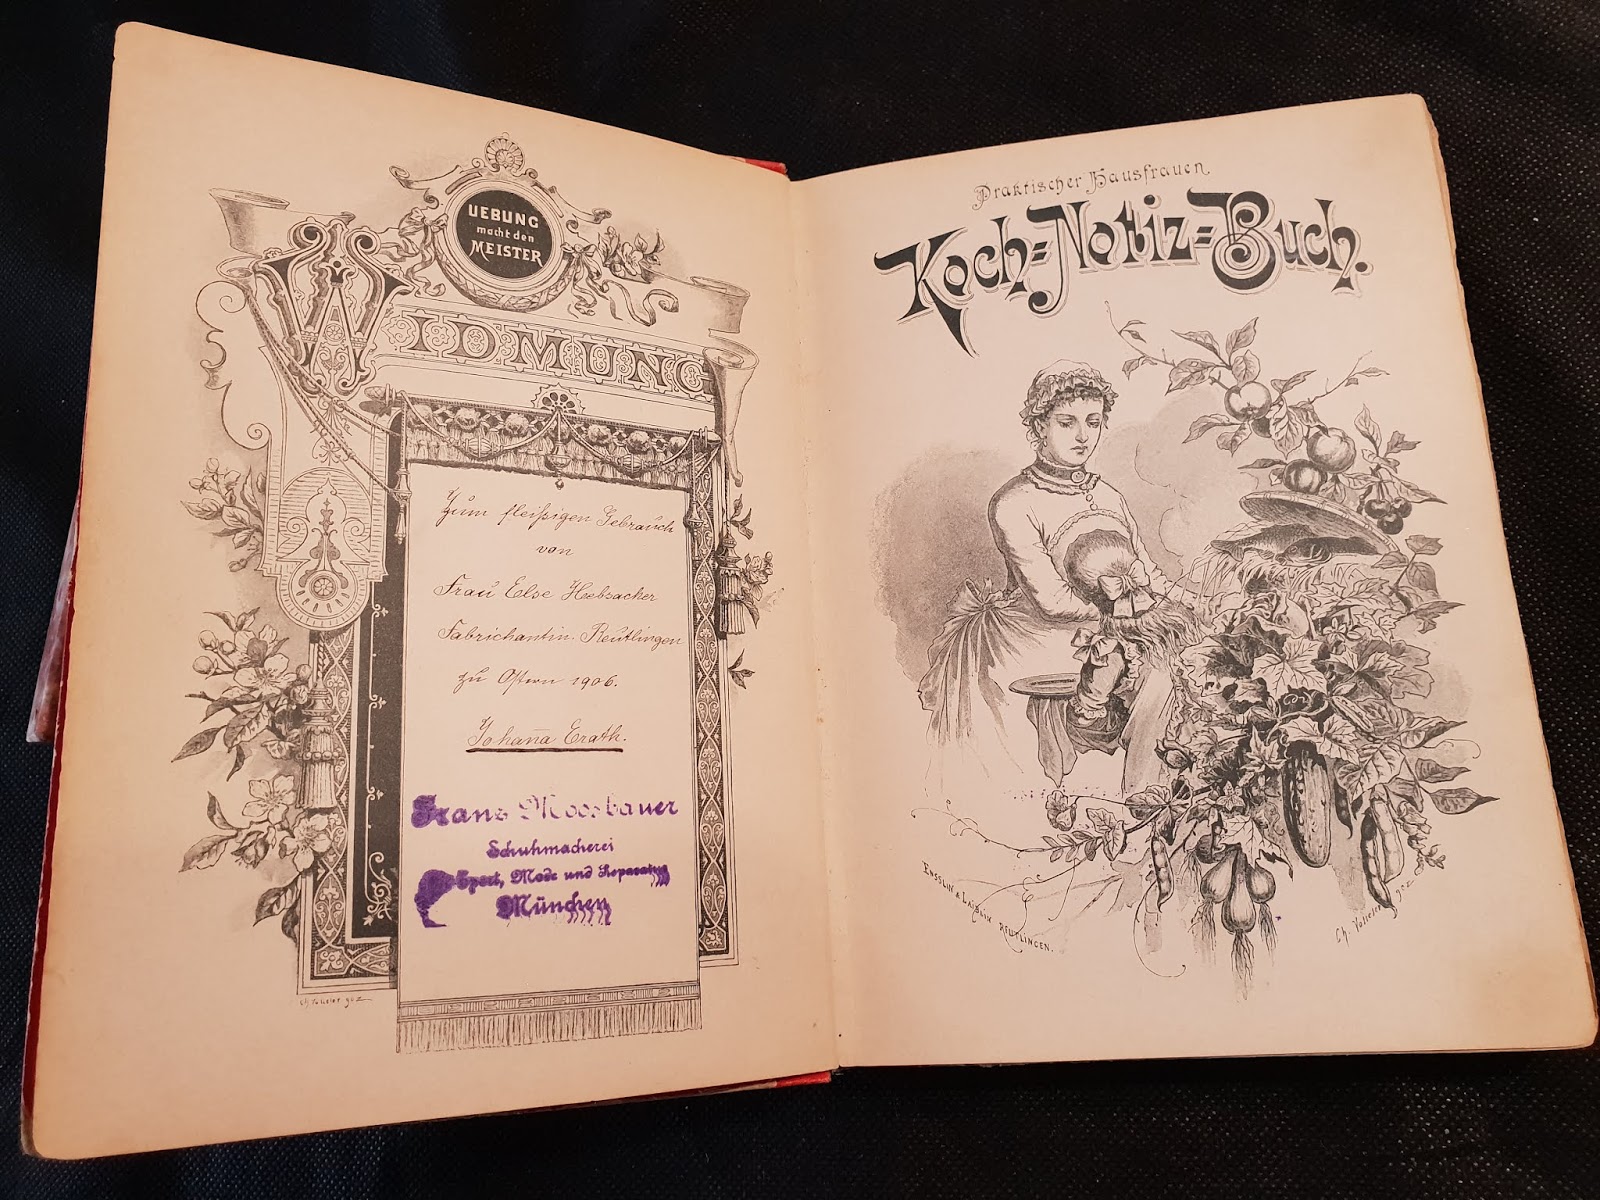 UEBUNG
macht den
MEISTER
WIDMUNG
Zum fleißigen Gebrauch
von
Frau Else Hebsacker
Fabrichantin. Reutlingen
zu Ostern 1906.
Johan̄a Erath.
Franz Moosbauer
Schuhmacherei
Sport, Mode und Reparatur
München
Praktischer Hausfrauen
Koch=Notiz=Buch.
ENSSLIN & LAIBLIN REUTLINGEN.